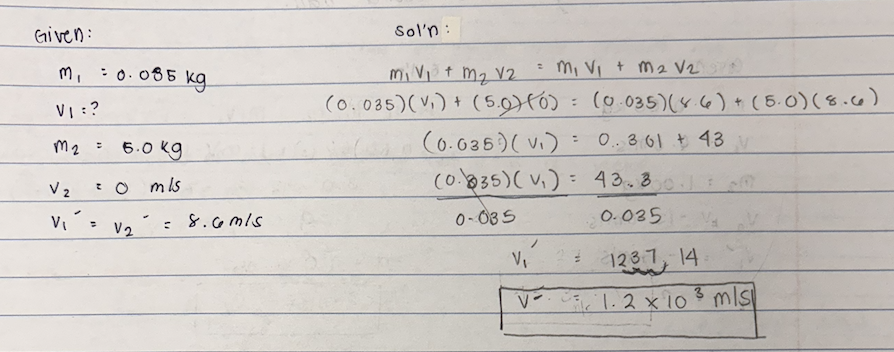 Given:
m₁ = 0.035 kg
V₁ : ?
m₂ = 5.0 kg
V₂ = 0 m/s
V₁' = V₂' = 8.6 m/s
Sol'n:
m₁V₁ + m₂V₂ = m₁V₁ + m₂V₂
(0.035)(V₁) + (5.0)(0) = (0.035)(8.6) + (5.0)(8.6)
(0.035)(V₁) = 0.301 + 43
(0.035)(V₁) = 43.3
0.035 0.035
V₁' = 1237.14
V' = 1.2 x 10³ m/s